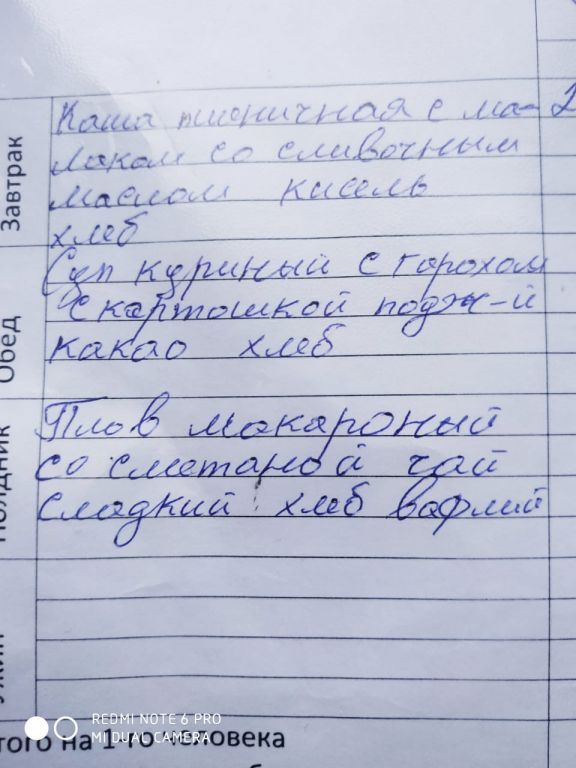 Завтрак
Каша пшеничная с ма- 2
лаком со сливочным
маслом кисель
хлеб
Обед
Суп куриный с горохом
с картошкой подж-й
какао хлеб
Полдник
Плов макароный
со сметаной чай
сладкий хлеб вафлий
Ужин
того на 1-го человека
REDMI NOTE 6 PRO
MI DUAL CAMERA